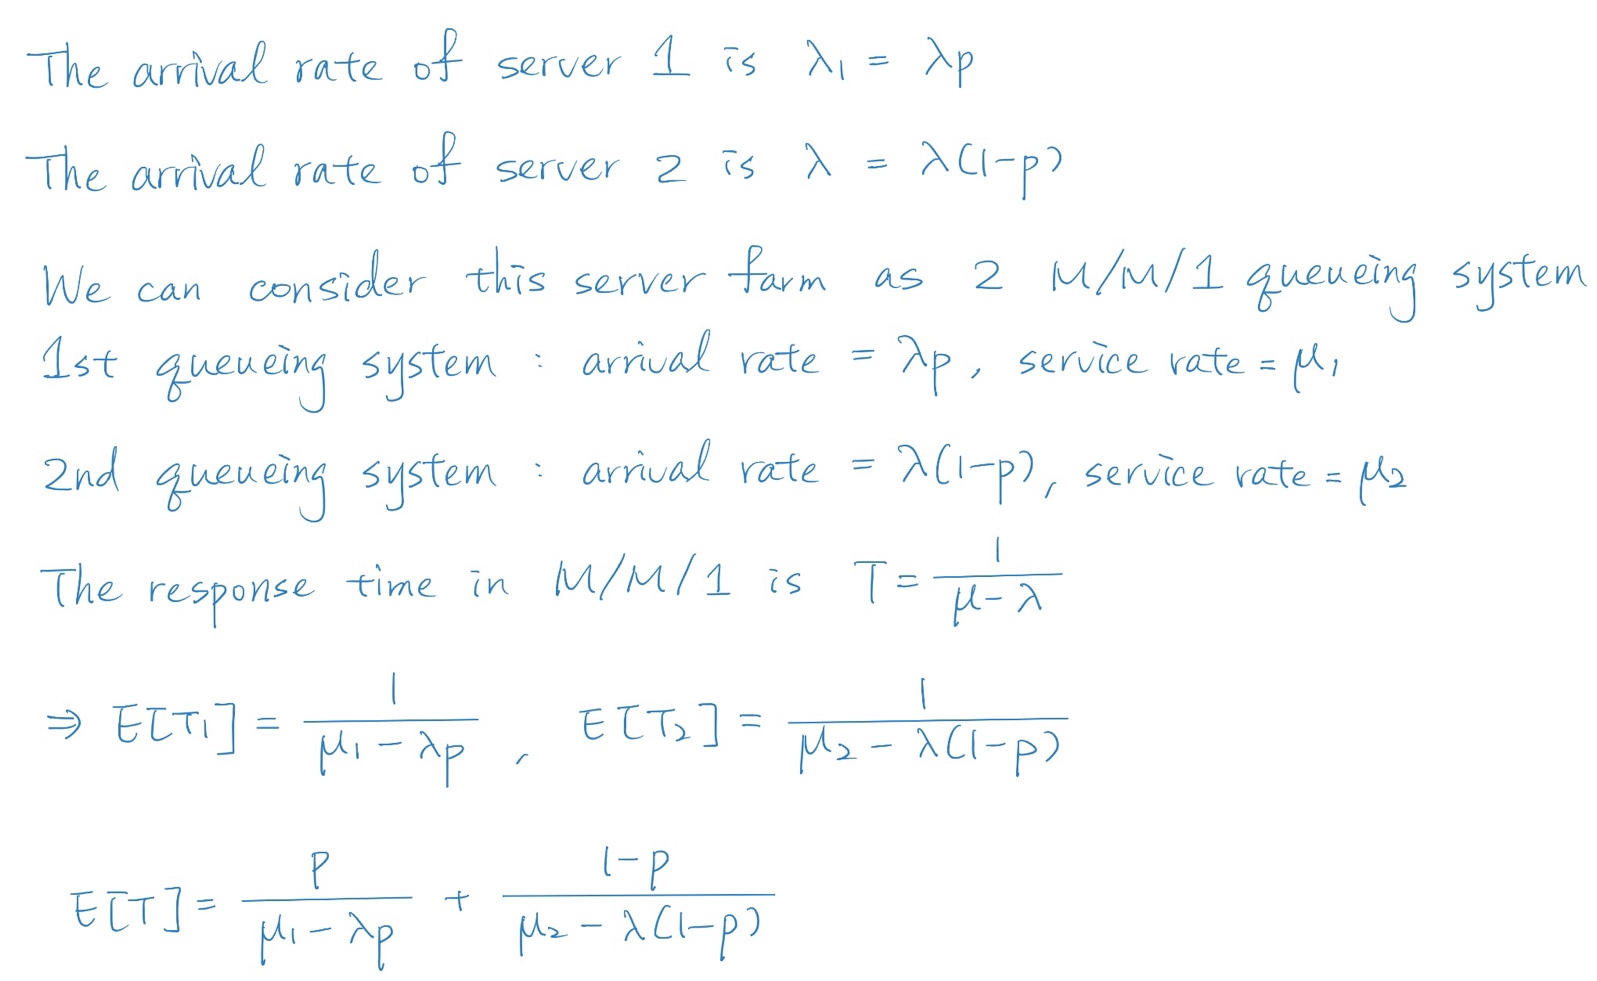 The arrival rate of server 1 is λ₁ = λp
The arrival rate of server 2 is λ = λ(1-p)
We can consider this server farm as 2 M/M/1 queueing system
1st queueing system : arrival rate = λp, service rate = μ₁
2nd queueing system : arrival rate = λ(1-p), service rate = μ₂
The response time in M/M/1 is T = 1/(μ-λ)
⇒ E[T₁] = 1/(μ₁-λp), E[T₂] = 1/(μ₂-λ(1-p))
E[T] = p/(μ₁-λp) + (1-p)/(μ₂-λ(1-p))